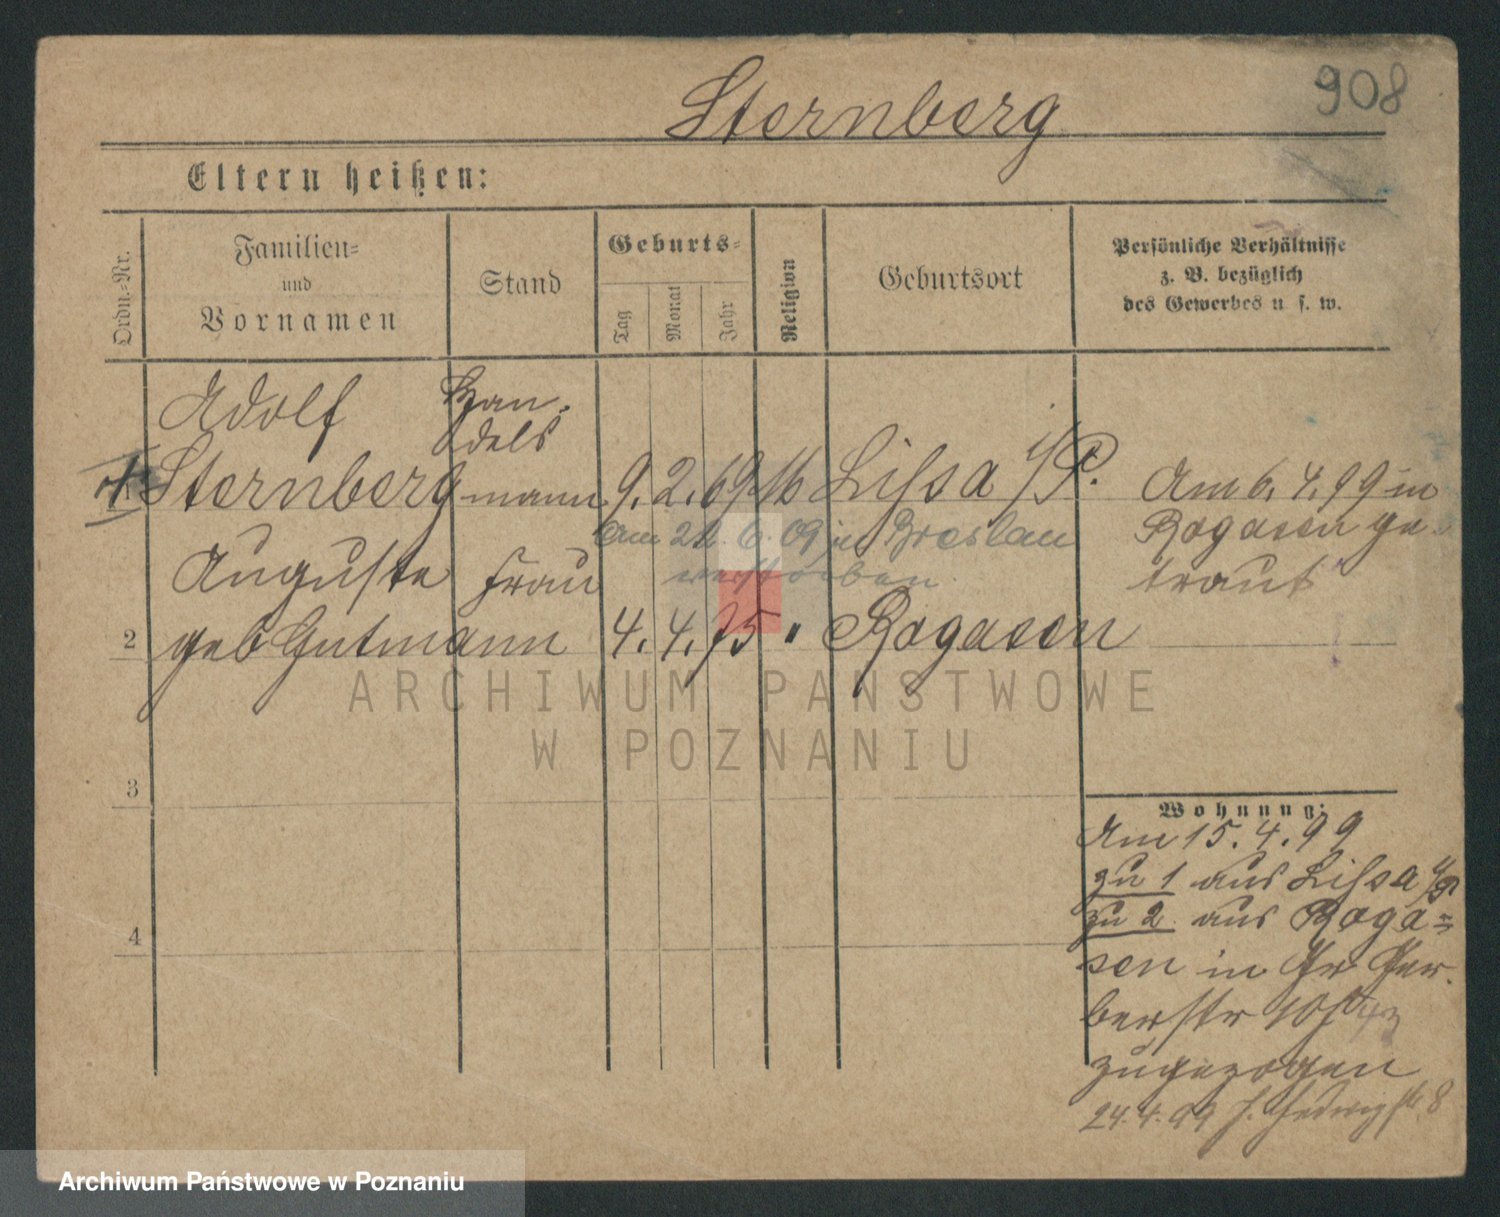 Sternberg
908
Eltern heißen:
Ordn.-Nr.
Familien-
und
Vornamen
Stand
Geburts-
Tag
Monat
Jahr
Religion
Geburtsort
Persönliche Verhältnisse
z. B. bezüglich
des Gewerbes u. s. w.
Adolf Han-
dels
1 Sternberg mann 9. 2. 69 Lissa i/P. Am 6. 4. 99 in
Am 22. 6. 09 in Breslau
verstorben.
Rogasen ge-
traut
Auguste Frau
2 geb Gutmann 4. 4. 75 " Rogasen
ARCHIWUM PAŃSTWOWE
W POZNANIU
3
4
Wohnung:
Am 15. 4. 99
zu 1 aus Lissa i/P
zu 2 aus Roga=
sen in Gr Ger-
berstr 40
zugezogen
24. 4. 99 8
Archiwum Państwowe w Poznaniu